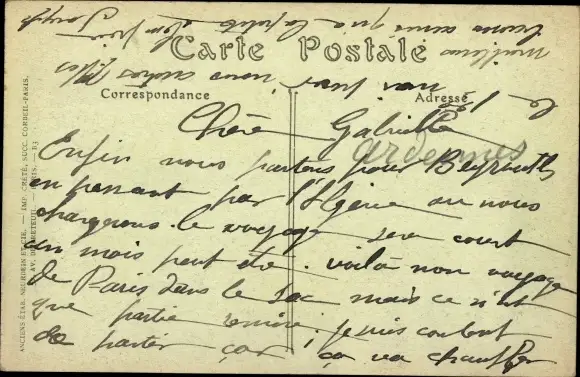 Carte Postale
Correspondance
Adresse
ardennes
Chère Gabrielle
Enfin nous partons pour Beyrouth
en passant par l'Algérie ou nous
chargeons. le voyage sera court
un mois peut être. voilà mon voyage
de Paris dans le sac mais ce n'est
que partie remise; je suis content
de partir car ça va chauffer
le 1
nous autres
meilleurs
ton frère Joseph
ANCIENS ÉTAB. NEURDEIN ET CIE. — IMP. CRÉTÉ, SUCC. CORBEIL-PARIS.